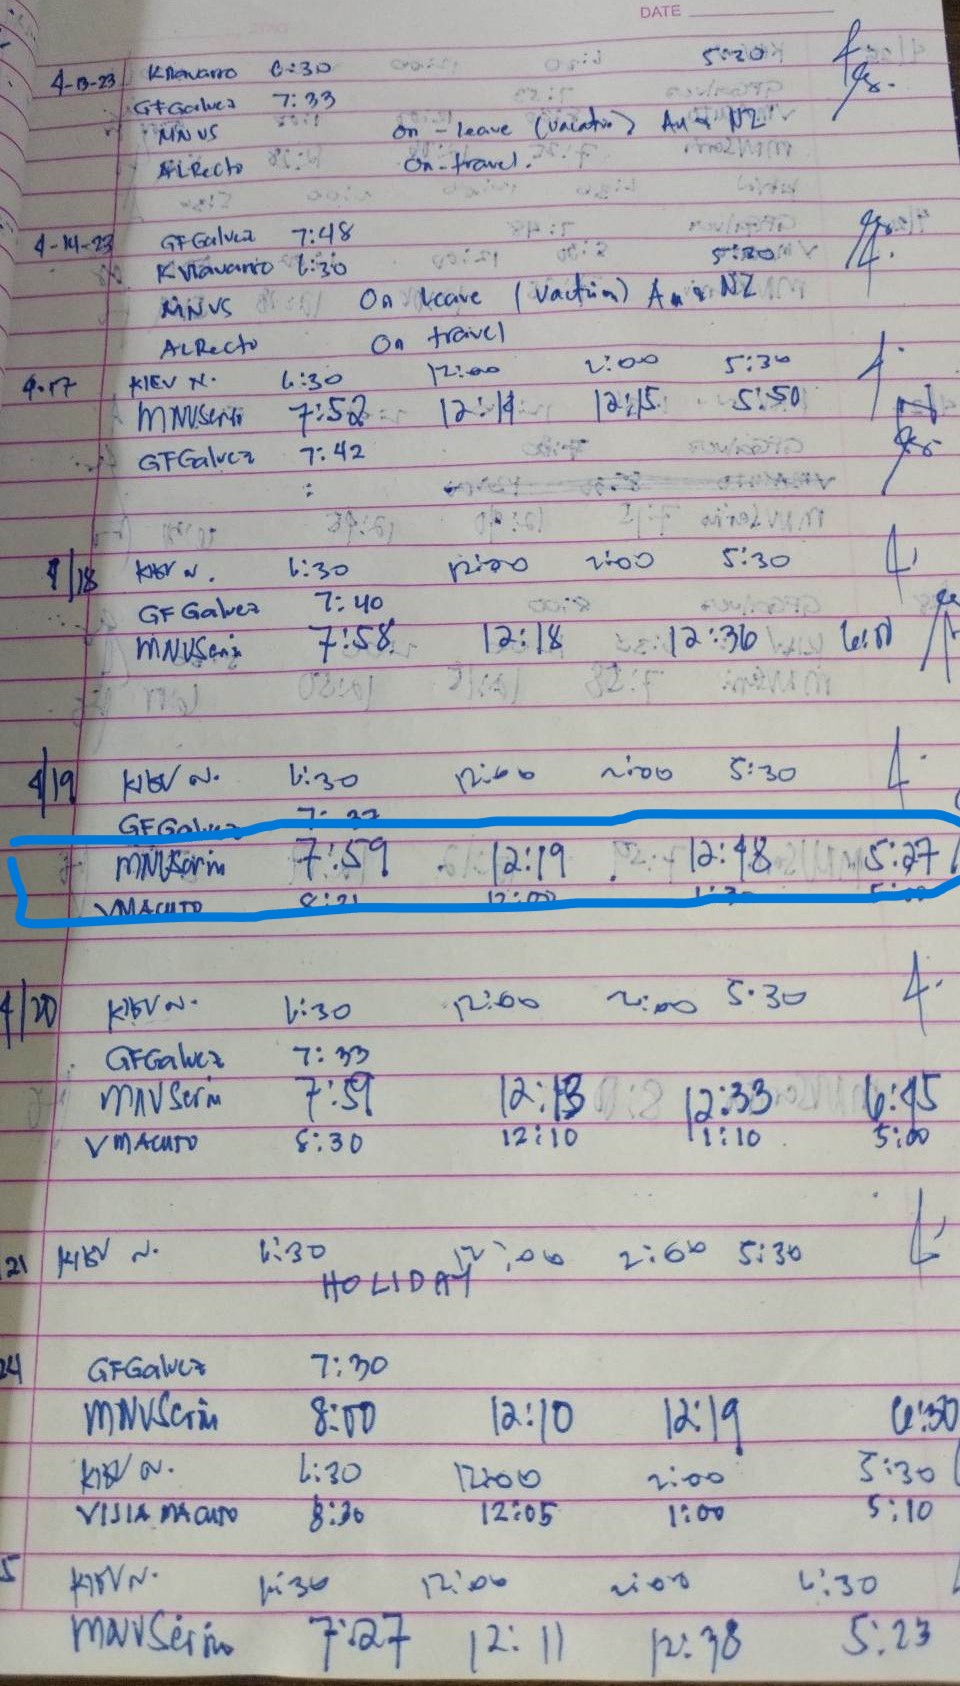 DATE
4-13-23 KNavarro 6:30 5:30
GFGalvez 7:33
MNVS On-leave (vacation) Au & NZ
ALRecto On-travel.
4-14-23 GFGalvez 7:48
KNavarro 6:30 5:30
MNVS On leave (vaction) Au & NZ
ALRecto On travel
4-17 KIEV N. 6:30 12:00 2:00 5:30
MNVSerin 7:52 12:14 12:15 5:50
GFGalvez 7:42
4/18 KIEV N. 6:30 12:00 2:00 5:30
GF Galvez 7:40
MNVSerin 7:58 12:18 12:36 6:01
4/19 KIEV N. 6:30 12:00 2:00 5:30
GFGalvez
MNVSerin 7:59 12:19 12:48 5:27
VMACUTO 8:21 12:00 1:30 5:00
4/20 KIEV N. 6:30 12:00 2:00 5:30
GFGalvez 7:33
MNVSerin 7:59 12:13 12:33 6:45
VMACUTO 8:30 12:10 1:10 5:00
21 KIEV N. 6:30 12:00 2:00 5:30
HOLIDAY
24 GFGalvez 7:30
MNVSerin 8:00 12:10 12:19 6:30
KIEV N. 6:30 12:00 2:00 5:30
VISIA MACUTO 8:30 12:05 1:00 5:10
5 KIEV N. 6:30 12:00 2:00 6:30
MNVSerin 7:27 12:11 12:38 5:23